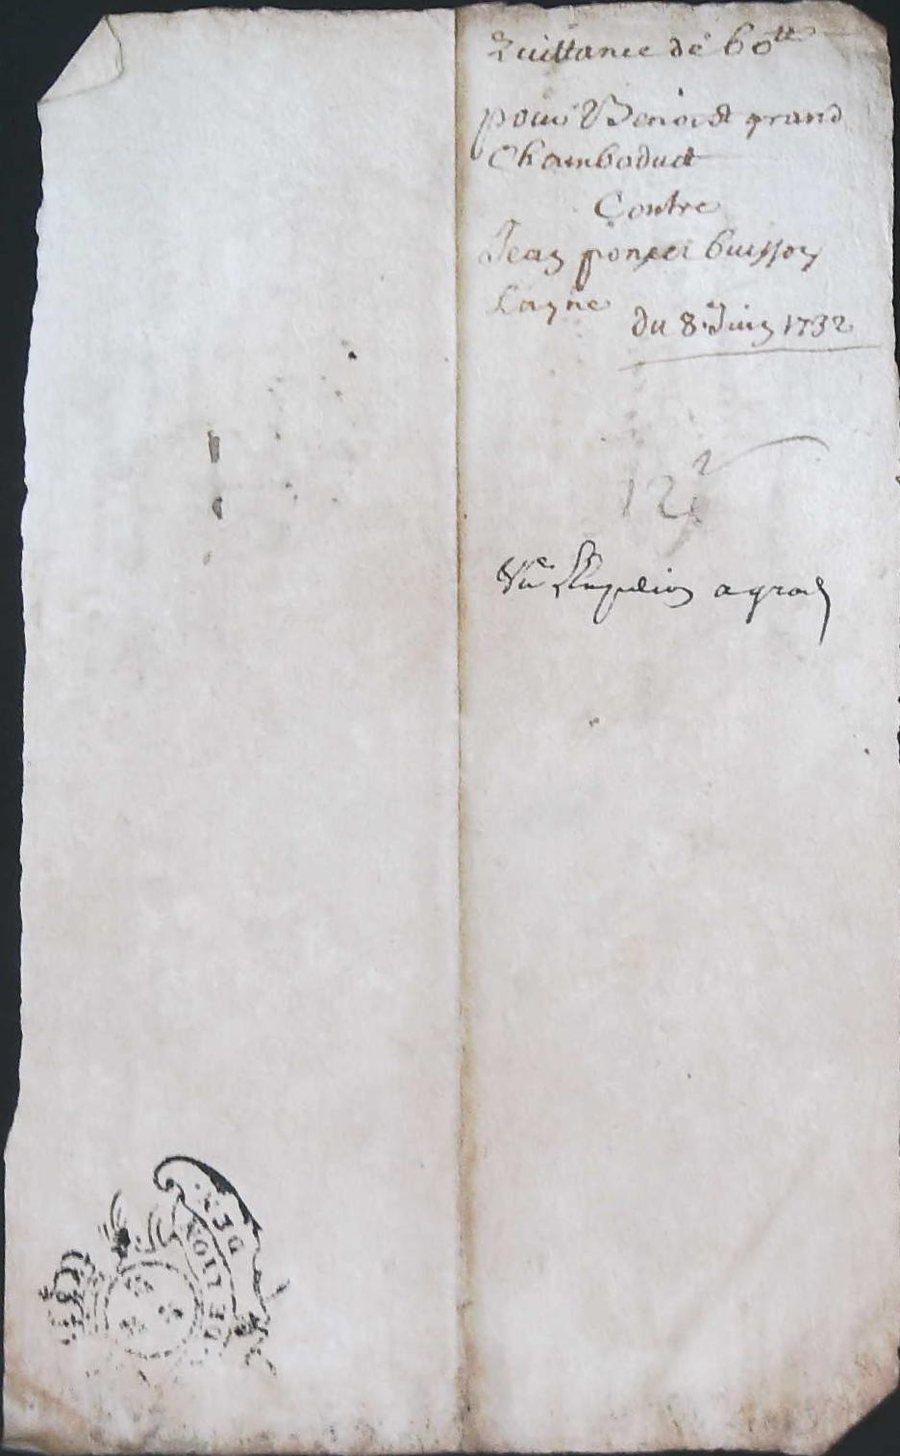 Quittance de 60tt
pour Benoist grand
Chamboduct
Contre
Jean poncet buisson
Layne
du 8e Juin 1732
12
DE LION
DEN.